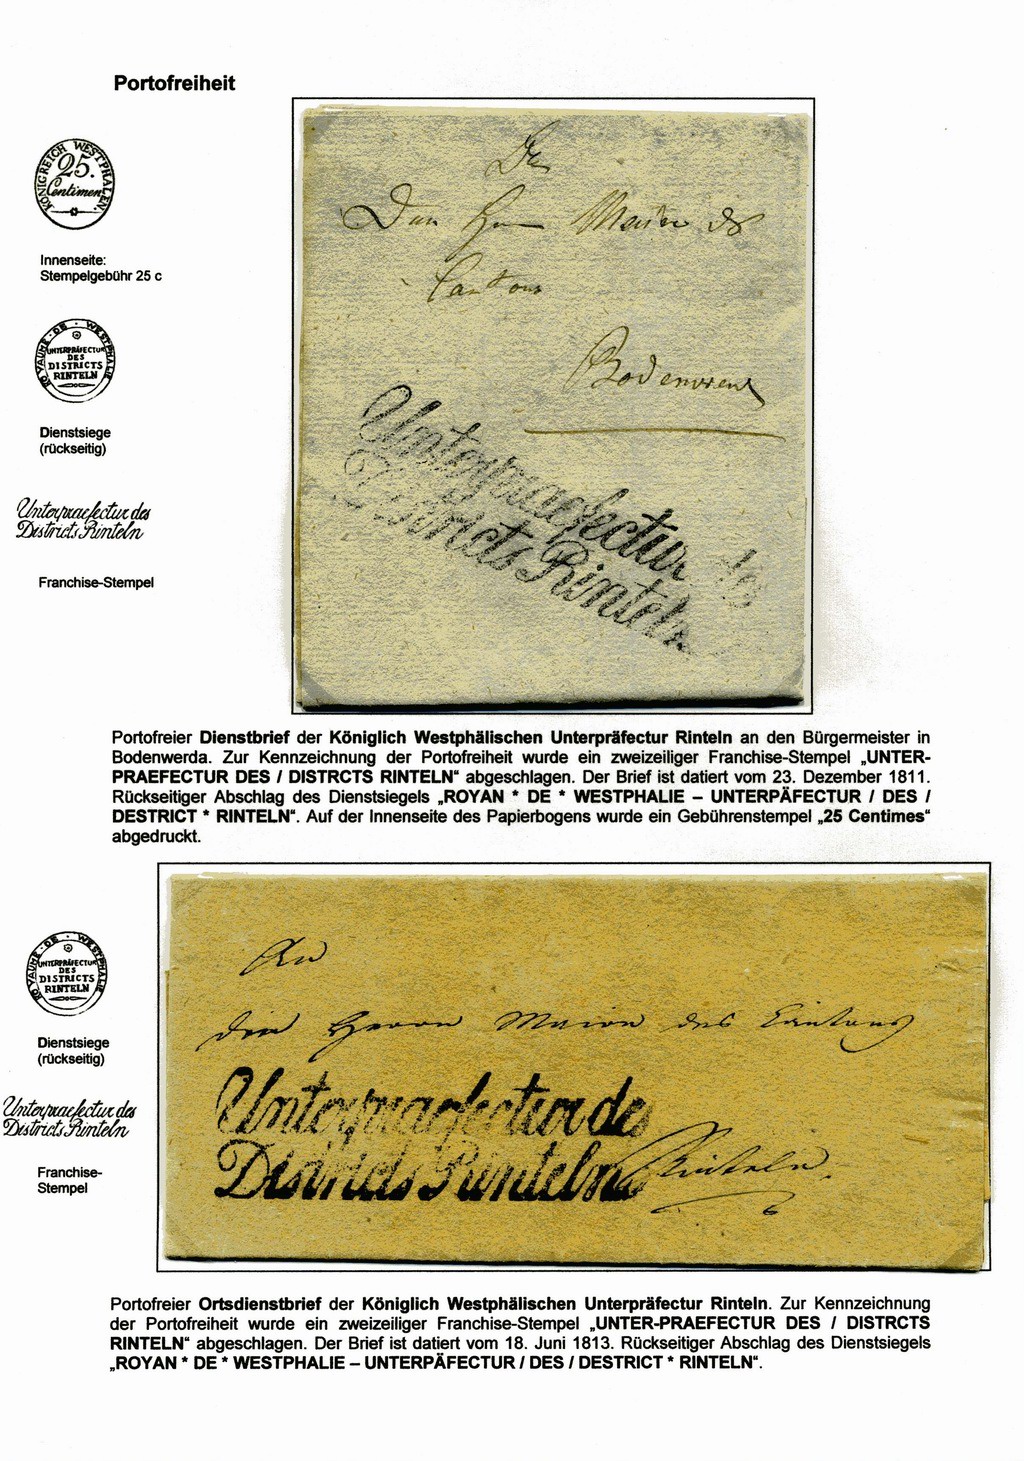 Portofreiheit
KÖNIGREICH WESTPHALEN.
25.
Centimen
Innenseite:
Stempelgebühr 25 c
ROYAUME · DE · WESTPHALIE
UNTERPRÄFECTUR
DES
DISTRICTS
RINTELN
Dienstsiege
(rückseitig)
Unterpraefectur des
Districts Rinteln
Franchise-Stempel
Den Herrn Maire des
Cantons
Unterpraefectur des
Districts Rinteln
Portofreier Dienstbrief der Königlich Westphälischen Unterpräfectur Rinteln an den Bürgermeister in
Bodenwerda. Zur Kennzeichnung der Portofreiheit wurde ein zweizeiliger Franchise-Stempel „UNTER-
PRAEFECTUR DES / DISTRCTS RINTELN“ abgeschlagen. Der Brief ist datiert vom 23. Dezember 1811.
Rückseitiger Abschlag des Dienstsiegels „ROYAN * DE * WESTPHALIE – UNTERPÄFECTUR / DES /
DESTRICT * RINTELN“. Auf der Innenseite des Papierbogens wurde ein Gebührenstempel „25 Centimes“
abgedruckt.
ROYAUME · DE · WESTPHALIE
UNTERPRÄFECTUR
DES
DISTRICTS
RINTELN
Dienstsiege
(rückseitig)
Unterpraefectur des
Districts Rinteln
Franchise-
Stempel
An
den Herrn Maire des Cantons
Unterpraefectur des
Districts Rinteln
Rinteln.
Portofreier Ortsdienstbrief der Königlich Westphälischen Unterpräfectur Rinteln. Zur Kennzeichnung
der Portofreiheit wurde ein zweizeiliger Franchise-Stempel „UNTER-PRAEFECTUR DES / DISTRCTS
RINTELN“ abgeschlagen. Der Brief ist datiert vom 18. Juni 1813. Rückseitiger Abschlag des Dienstsiegels
„ROYAN * DE * WESTPHALIE – UNTERPÄFECTUR / DES / DESTRICT * RINTELN“.